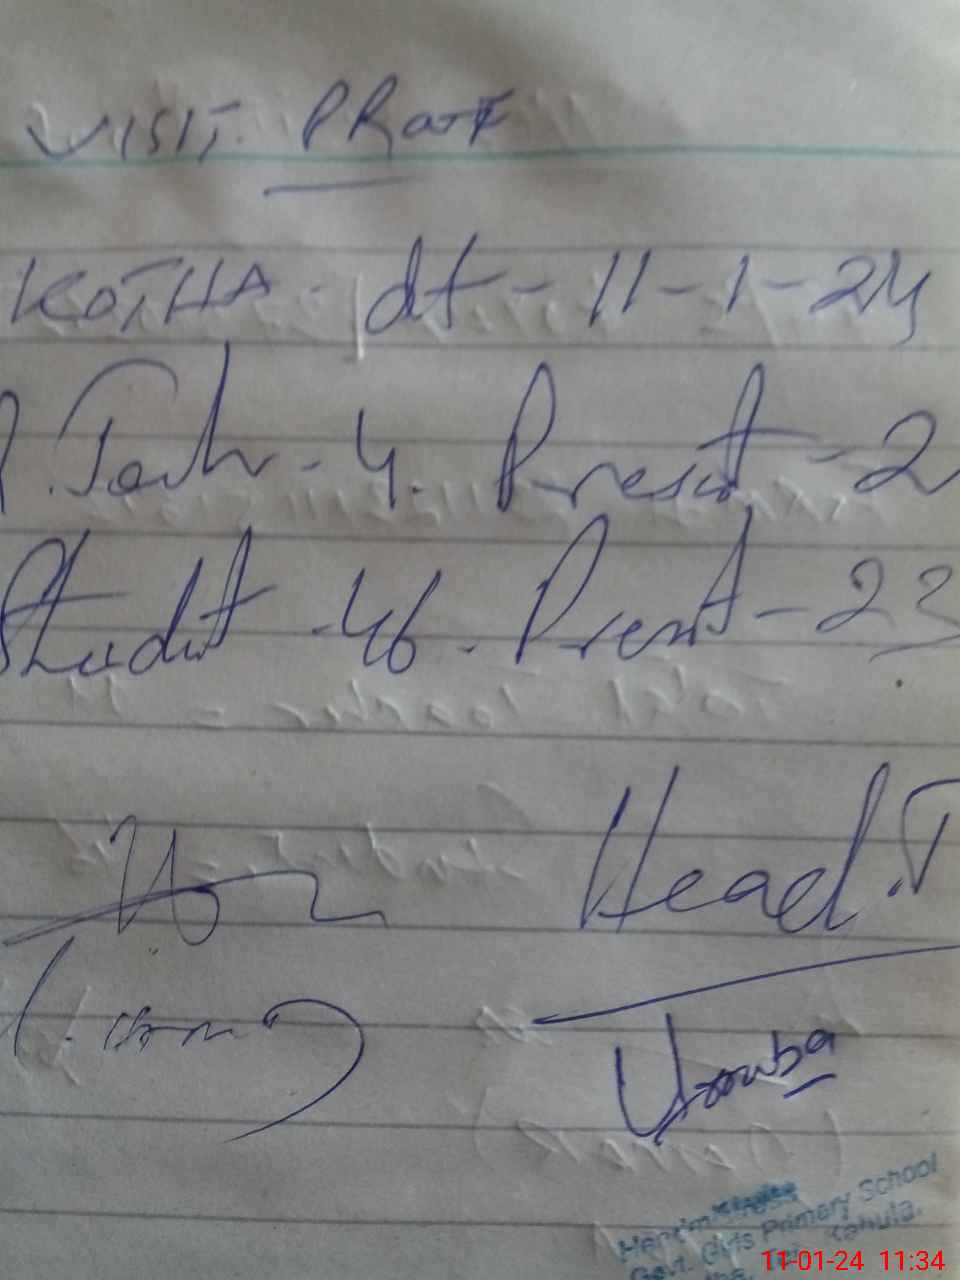 VISIT. PRooF
KOTHA - dt - 11-1-24
Teach - 4. Present - 2
Studt - 46. Present - 23
Head.T
Urooba
Headmistress
Govt. Girls Primary School
Kahula.
11-01-24 11:34